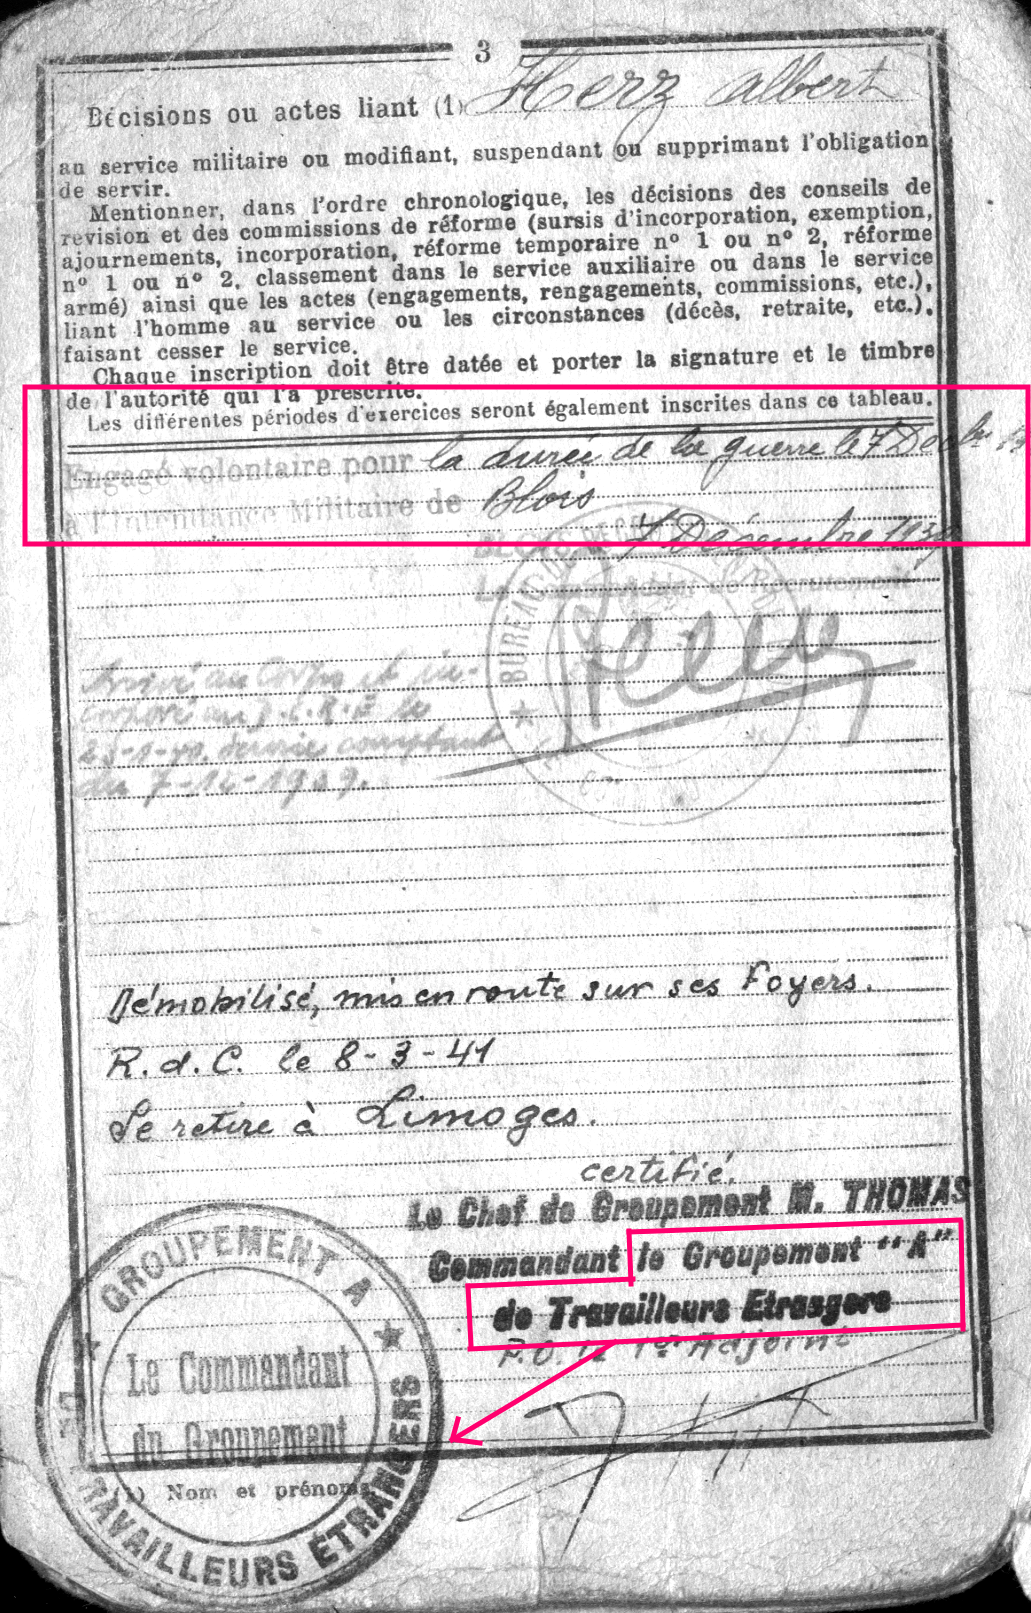 3
Décisions ou actes liant (1) Herz albert
au service militaire ou modifiant, suspendant ou supprimant l'obligation
de servir.
Mentionner, dans l'ordre chronologique, les décisions des conseils de
revision et des commissions de réforme (sursis d'incorporation, exemption,
ajournements, incorporation, réforme temporaire nº 1 ou nº 2, réforme
nº 1 ou nº 2, classement dans le service auxiliaire ou dans le service
armé) ainsi que les actes (engagements, rengagements, commissions, etc.),
liant l'homme au service ou les circonstances (décès, retraite, etc.),
faisant cesser le service.
Chaque inscription doit être datée et porter la signature et le timbre
de l'autorité qui l'a prescrite.
Les différentes périodes d'exercices seront également inscrites dans ce tableau.
Engagé volontaire pour la durée de la guerre le 7 Decbre 39
à l'Intendance Militaire de Blois
BLOIS 7 Décembre 1939
Le Commandant de Recrutement
BUREAU DE
Arrivé au Corps et in-
corporé au
du 7-12-1939.
Démobilisé, mis en route sur ses Foyers.
R.d.C. le 8-3-41
Se retire à Limoges.
certifié.
Le Chef de Groupement M. THOMAS
Commandant le Groupement "A"
de Travailleurs Etrasgers
P.O. le 1er Adjoint
GROUPEMENT A
Le Commandant
du Groupement
DE TRAVAILLEURS ÉTRANGERS
(1) Nom et prénoms.